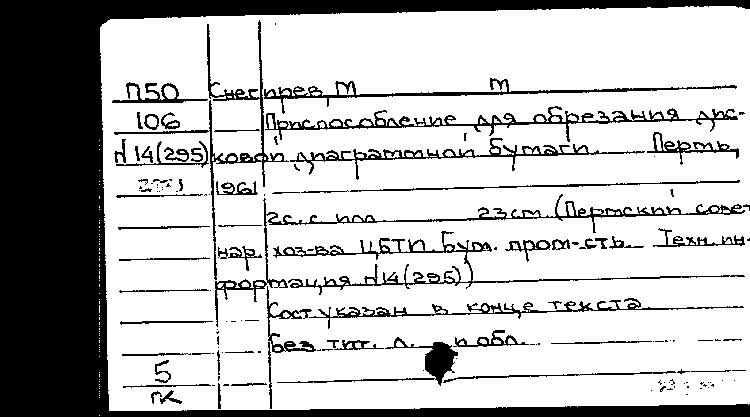 П50 Снегирев, М М
106 Приспособление для обрезания дис-
N14(295) ковой диаграммной бумаги. Пермь,
1961
2с. с илл 23см (Пермский совет
нар. хоз-ва ЦБТИ. Бум. пром-сть. Техн. ин-
формация N14(295))
Сост указан в конце текста
Без тит. л. и обл.
5
ПК